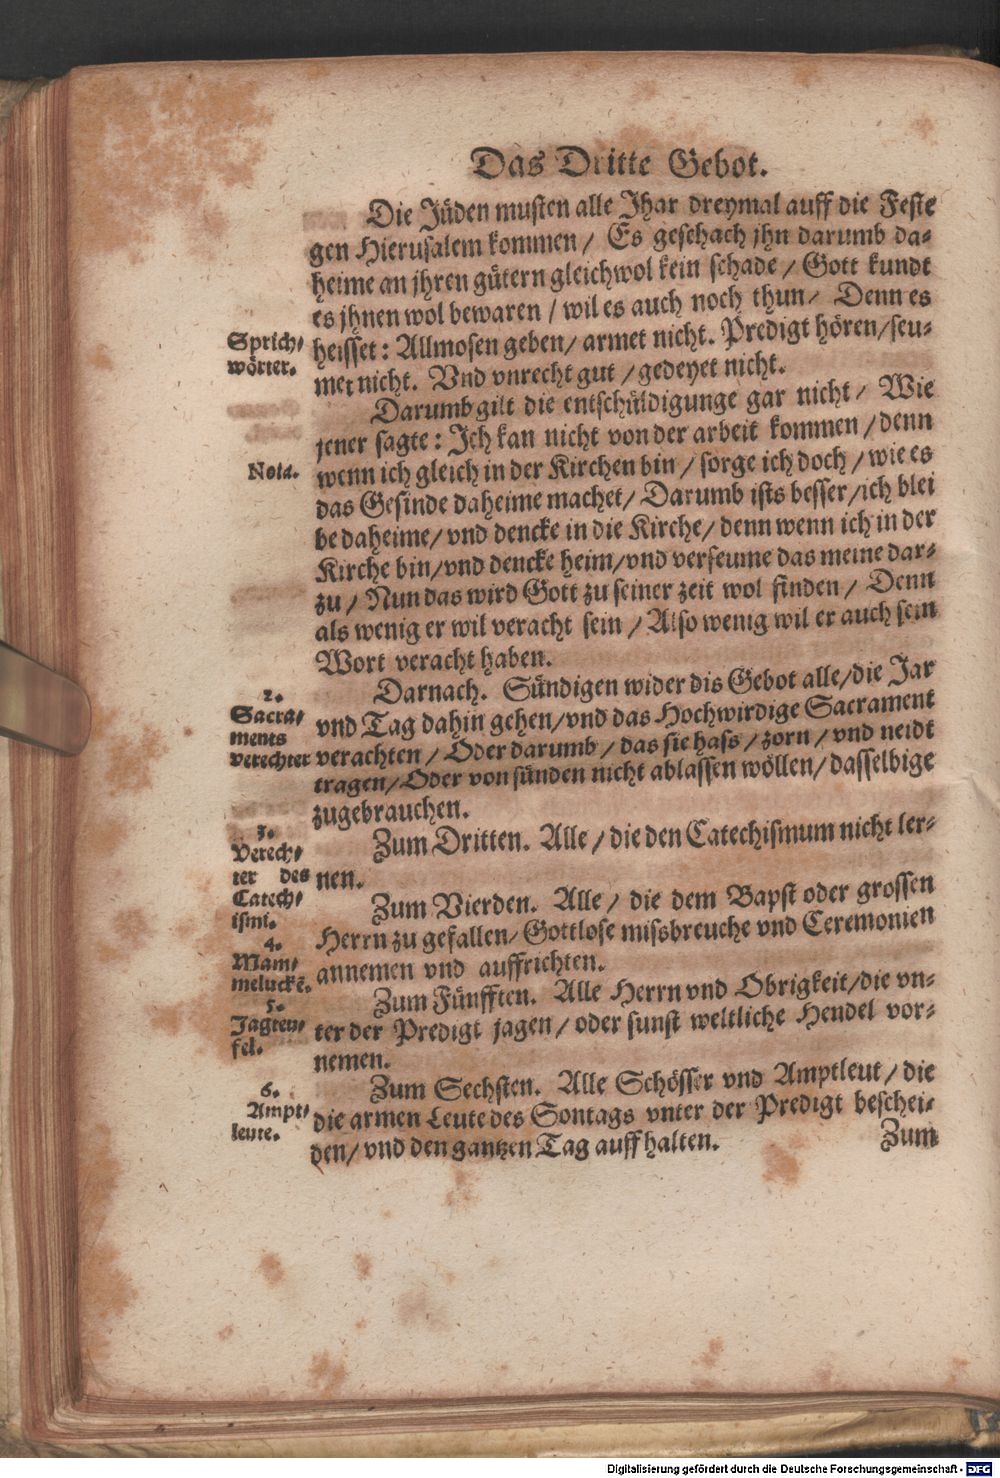 Das Dritte Gebot.
Die Jüden musten alle Jhar dreymal auff die Feste
gen Hierusalem kommen / Es geschach jhn darumb da-
heime an jhren gütern gleichwol kein schade / Gott kundt
es jhnen wol bewaren / wil es auch noch thun / Denn es
Sprich-
wörter.
heisset: Allmosen geben / armet nicht. Predigt hören / seu-
met nicht. Vnd vnrecht gut / gedeyet nicht.
Darumb gilt die entschüldigunge gar nicht / Wie
jener sagte: Ich kan nicht von der arbeit kommen / denn
Nota.
wenn ich gleich in der Kirchen bin / sorge ich doch / wie es
das Gesinde daheime machet / Darumb ists besser / ich blei
be daheime / vnd dencke in die Kirche / denn wenn ich in der
Kirche bin / vnd dencke heim / vnd verseume das meine dar-
zu / Nun das wird Gott zu seiner zeit wol finden / Denn
als wenig er wil veracht sein / Also wenig wil er auch sein
Wort veracht haben.
2.
Sacra-
ments
verechter
Darnach. Sündigen wider dis Gebot alle / die Jar
vnd Tag dahin gehen / vnd das Hochwirdige Sacrament
verachten / Oder darumb / das sie hass / zorn / vnd neidt
tragen / Oder von sünden nicht ablassen wöllen / dasselbige
zugebrauchen.
3.
Verech-
ter des
Catech-
ismi.
Zum Dritten. Alle / die den Catechismum nicht ler-
nen.
4.
Mam-
meluckē.
Zum Vierden. Alle / die dem Bapst oder grossen
Herrn zu gefallen / Gottlose missbreuche vnd Ceremonien
annemen vnd auffrichten.
5.
Jagteu-
fel.
Zum Fünfften. Alle Herrn vnd Obrigkeit / die vn-
ter der Predigt jagen / oder sunst weltliche Hendel vor-
nemen.
6.
Ampt-
leute.
Zum Sechsten. Alle Schösser vnd Amptleut / die
die armen Leute des Sontags vnter der Predigt beschei-
den / vnd den gantzen Tag auffhalten.
Zum
Digitalisierung gefördert durch die Deutsche Forschungsgemeinschaft - DFG